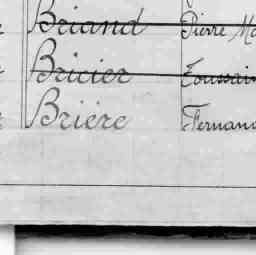 Briand Pierre Ma
Bricier Toussain
Brière Fernand